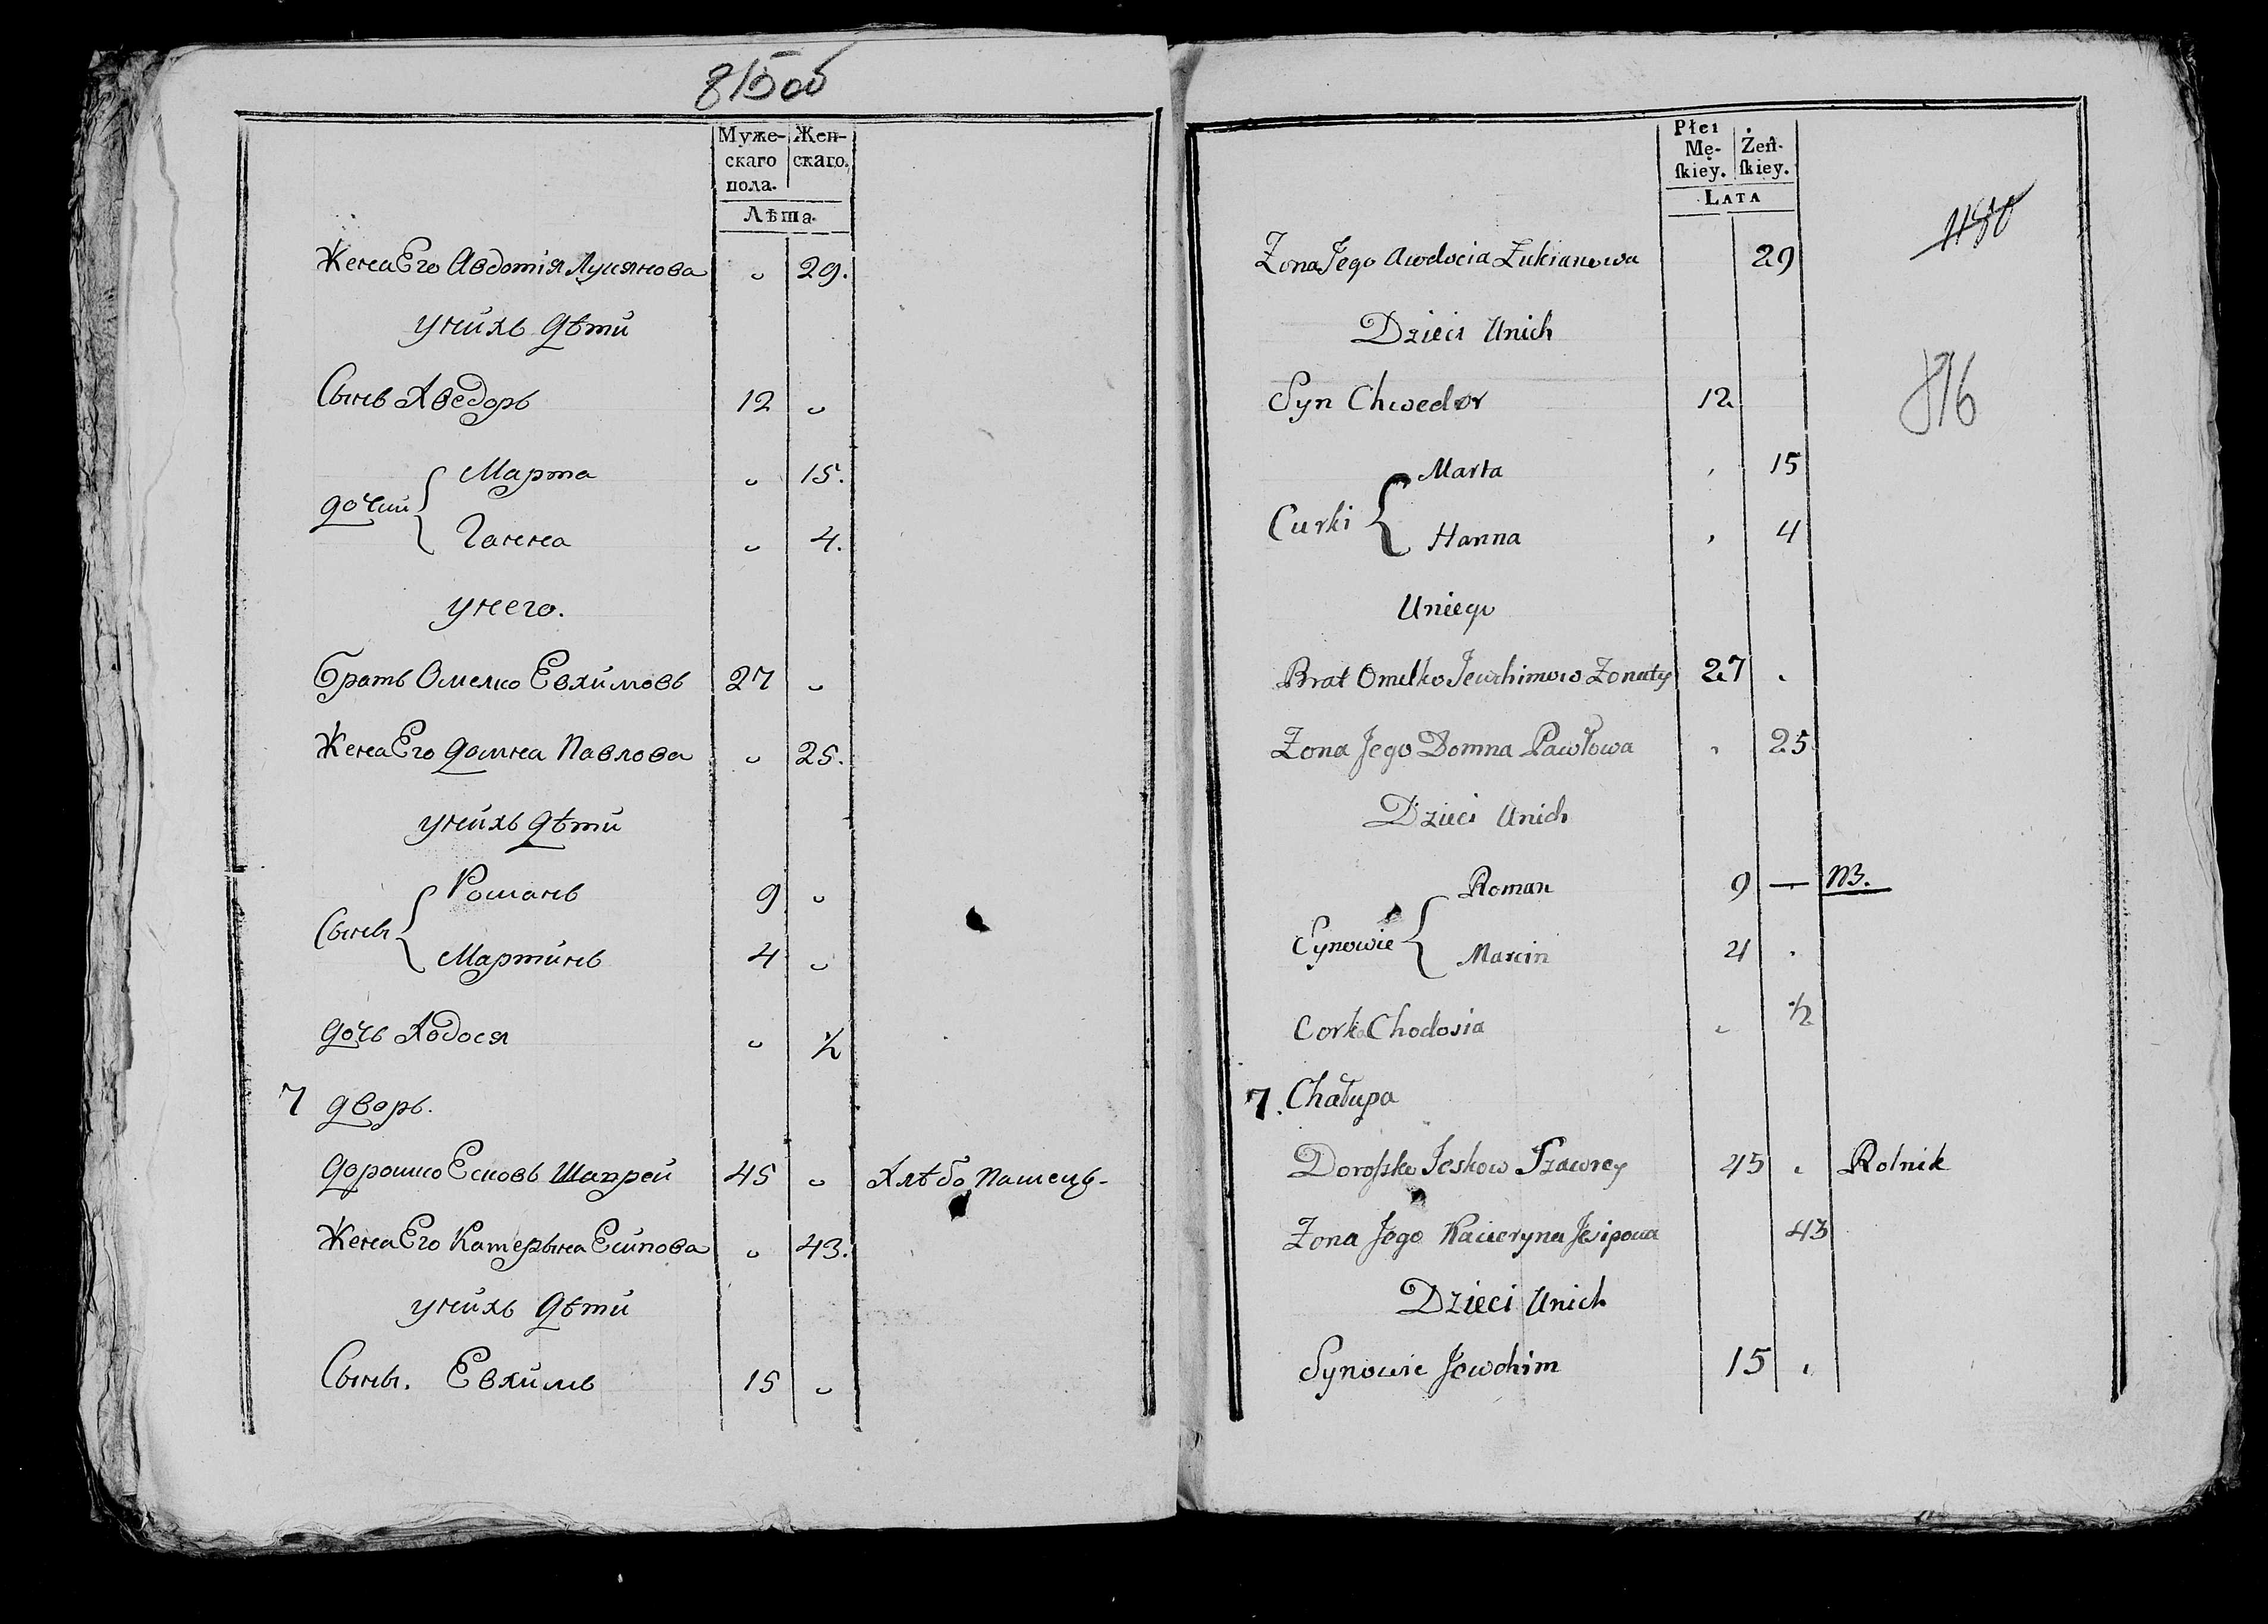 815об
Муже-
скаго
пола.
Жен-
скаго.
Лѣта.
Жена Его Авдотія Лукянова 29.
у нихъ дѣти
Сынъ Хведоръ 12
Марта 15.
дочки
Ганна 4.
у него.
братъ Омелко Евхимовъ 27
Жена Его Домна Павлова 25.
у нихъ дѣти
Романъ 9
Сыны
Мартинъ 4
дочь Ходося ½
7 дворъ.
Дорошко Есковъ 45 Хлѣбо пашецъ.
Жена Его Катерына Есипова 43.
у нихъ дѣти
Сыны. Евхимъ 15
Płci
Mę-
ſkiey.
Żeń-
ſkiey.
LATA
816
Zona Jego Awdocia Łukianowa 29
Dzieci Unich
Syn Chwedor 12
Marta 15
Curki
Hanna 4
Uniego
Brat Omelko Jewchimow Zonaty 27
Zona Jego Domna Pawłowa 25
Dzieci Unich
Roman 9 — NB.
Synowie
Marcin 4
Corka Chodosia ½
7. Chałupa
Doroſzko Jeskow Szawrey 45 Rolnik
Zona Jego Kacieryna Jesipowa 43
Dzieci Unich
Synowie Jewchim 15